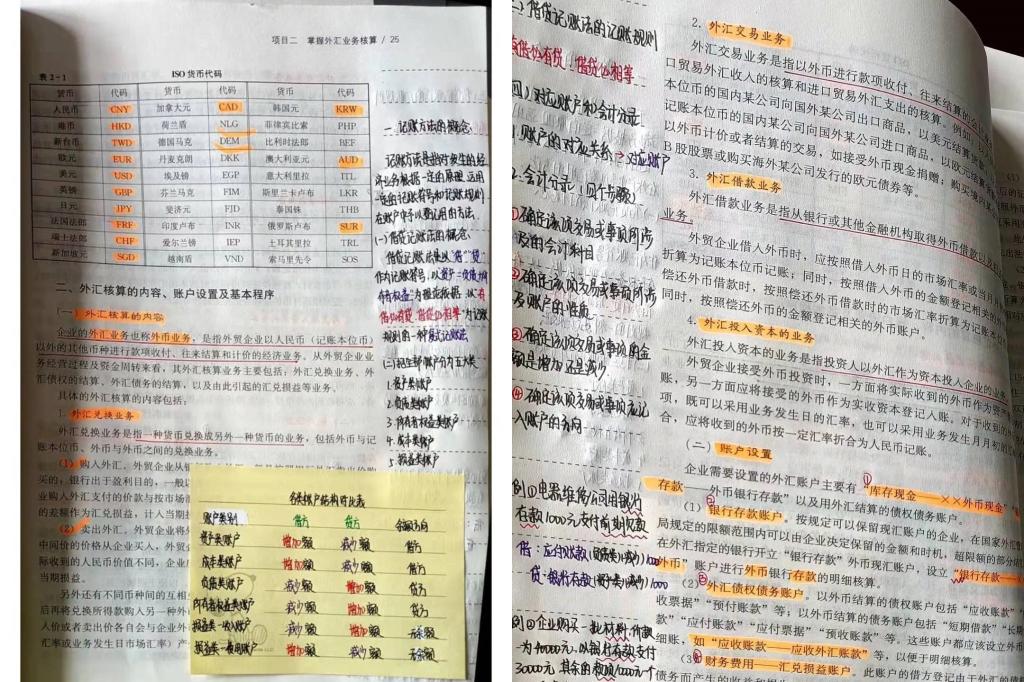 项目二 掌握外汇业务核算 / 25
表 2-1 ISO 货币代码
货币 代码 货币 代码 货币 代码
人民币 CNY 加拿大元 CAD 韩国元 KRW
港币 HKD 荷兰盾 NLG 菲律宾比索 PHP
新台币 TWD 德国马克 DEM 比利时法郎 BEF
欧元 EUR 丹麦克朗 DKK 澳大利亚元 AUD
美元 USD 埃及镑 EGP 意大利里拉 ITL
英镑 GBP 芬兰马克 FIM 斯里兰卡卢布 LKR
日元 JPY 斐济元 FJD 泰国铢 THB
法国法郎 FRF 印度卢布 INR 俄罗斯卢布 SUR
瑞士法郎 CHF 爱尔兰镑 IEP 土耳其里拉 TRL
新加坡元 SGD 越南盾 VND 索马里先令 SOS
二、外汇核算的内容、账户设置及基本程序
(一) 外汇核算的内容
企业的外汇业务也称外币业务,是指外贸企业以人民币(记账本位币)
以外的其他币种进行款项收付、往来结算和计价的经济业务。从外贸企业业
务经营过程及资金周转来看,其外汇核算业务主要包括:外汇兑换业务、外
汇债权的结算、外汇债务的结算,以及由此引起的汇兑损益等业务。
具体的外汇核算的内容包括:
1. 外汇兑换业务
外汇兑换业务是指一种货币兑换成另外一种货币的业务,包括外币与记
账本位币、外币与外币之间的兑换业务。
(1) 购入外汇。外贸企业从银
买的,银行出于盈利目的,一般以
业购入外汇支付的价款与按市场
的差额作为汇兑损益,计入当期
(2) 卖出外汇。外贸企业将
中间价的价格从企业买入,外贸企
际收到的人民币价值不同,企业
当期损益。
另外还有不同币种间的互相
后再将兑换所得款购入另一种外
人价或者卖出价各自会与企业外
汇率或业务发生日市场汇率)产
一、记账方法的概念:
记账方法是指对发生的经
济业务根据一定的原理,运用
一定的记账符号和记账规则
在账户中予以登记的方法。
(一)借贷记账法的概念:
借贷记账法是以"借""贷"
作为记账符号,以资产=负债+所
有者权益为理论依据,以"有
借必有贷,借贷必相等"为记账
规则的一种复式记账法
1. 资产类账户
2. 负债类账户
3. 所有者权益类账户
4. 成本类账户
5. 损益类账户
各类账户结构对比表
账户类别 借方 贷方 余额方向
资产类账户 增加额 减少额 借方
成本类账户 增加额 减少额 借方
负债类账户 减少额 增加额 贷方
所有者权益类账户 减少额 增加额 贷方
损益类-收入账户 减少额 增加额 无余额
损益类-费用账户 增加额 减少额 无余额
借贷记账法的记账规则
有借必有贷,借贷必相等
四)对应账户和会计分录
1. 账户的对应关系 → 对应账户
2. 会计分录(四个步骤)
① 确定该项交易或事项所涉
及的会计科目
② 确定该项交易或事项所涉
及账户的性质
③ 确定该项交易或事项的金
额是增加还是减少
④ 确定该项交易或事项应记
入账户的方向
例① 电器维修公司用银行
存款1000元支付前期欠款
借:应付账款(负债类)(减少)1000
贷:银行存款(资产类)(减少)1000
例② 企业购买一批材料,价款
为40000元,以银行存款支付
30000元,其余的款项10000元
2. 外汇交易业务
外汇交易业务是指以外币进行款项收付、往来结算的
口贸易外汇收入的核算和进口贸易外汇支出的核算。例如,
本位币的国内某公司向国外某公司出口商品,以美元结算货
记账本位币的国内某公司向国外某公司进口商品,以欧元结
以外币计价或者结算的交易,如接受外币现金捐赠;购买境
B 股股票或购买海外某公司发行的欧元债券等。
3. 外汇借款业务
外汇借款业务是指从银行或其他金融机构取得外币借款
业务。
外贸企业借入外币时,应按照借入外币日的市场汇率或当月
折算为记账本位币记账;同时,按照借入外币的金额登记相关的外
偿还外币借款时,按照偿还外币借款时的市场汇率折算为记账本位
同时,按照偿还外币的金额登记相关的外币账户。
4. 外汇投入资本的业务
外汇投入资本的业务是指投资人以外汇作为资本投入企业的业务
外贸企业接受外币投资时,一方面将实际收到的外币作为资产
账,另一方面应将接受的外币作为实收资本登记入账。对于收到的
项,既可以采用业务发生日的汇率,也可以采用业务发生月月初的
应将收到的外币按一定汇率折合为人民币记账。
(二) 账户设置
企业需要设置的外汇账户主要有"库存现金——××外币现金"
存款——外币银行存款"以及用外汇结算的债权债务账户。
(1) 银行存款账户。按规定可以保留现汇账户的企业,在国家外汇
局规定的限额范围内可以由企业决定保留的金额和时机,超限额的部分
在外汇指定的银行开立"银行存款"外币现汇账户,设立"银行存款——
外币"账户进行外币银行存款的明细核算。
(2) 外汇债权债务账户。以外币结算的债权账户包括"应收账款"
收票据""预付账款"等;以外币结算的债务账户包括"短期借款""长期
款""应付账款""应付票据""预收账款"等。这些账户都应该设立外币
细账,如"应收账款——应收外汇账款"等,以便于明细核算。
(3) 财务费用——汇兑损益账户。此账户的借方登记由于外汇的债